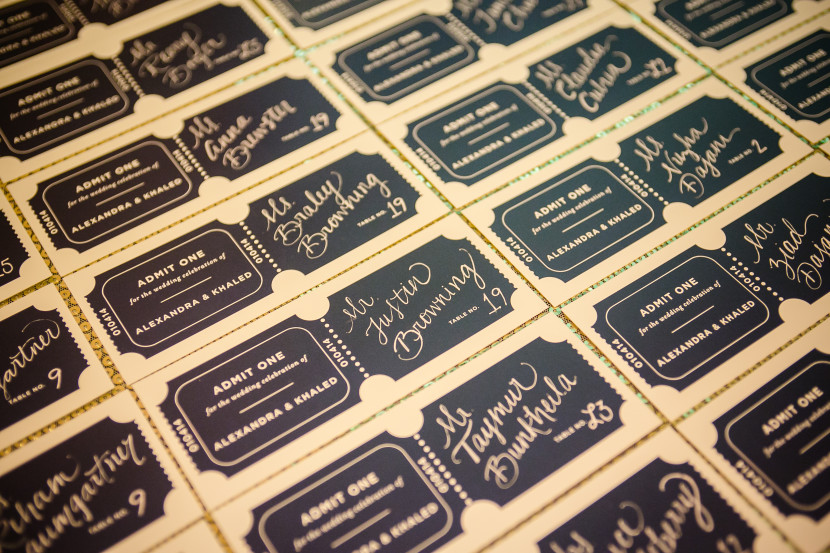 Mr.
TABLE NO. 23
ADMIT ONE
for the wedding celebration of
ALEXANDRA & KHALED
010414
Ms.
Anna
Brewster
TABLE NO. 19
ADMIT ONE
for the wedding celebration of
ALEXANDRA & KHALED
010414
Ms.
Braley
Browning
TABLE NO. 19
ADMIT ONE
for the wedding celebration of
ALEXANDRA & KHALED
010414
Mr.
Justin
Browning
TABLE NO. 19
ADMIT ONE
for the wedding celebration of
ALEXANDRA & KHALED
010414
Mr.
Taymur
Bunkheila
TABLE NO. 23
ADMIT ONE
for the wedding celebration of
ALEXANDRA & KHALED
ADMIT ONE
for the wedding celebration of
ALEXANDRA & KHALED
Ms.
Claudia
TABLE NO. 22
ADMIT ONE
for the wedding celebration of
ALEXANDRA & KHALED
010414
Ms.
Nusha
Dajani
TABLE NO. 2
ADMIT ONE
for the wedding celebration of
ALEXANDRA & KHALED
010414
Mr.
Ziad
ADMIT ONE
for the wedding celebration of
ALEXANDRA & KHALED
010414
ADMIT ONE
for the wedding celebration of
ALEXANDRA & KHALED
010414
ADMIT ONE
TABLE NO. 9
aumgartner
TABLE NO. 9